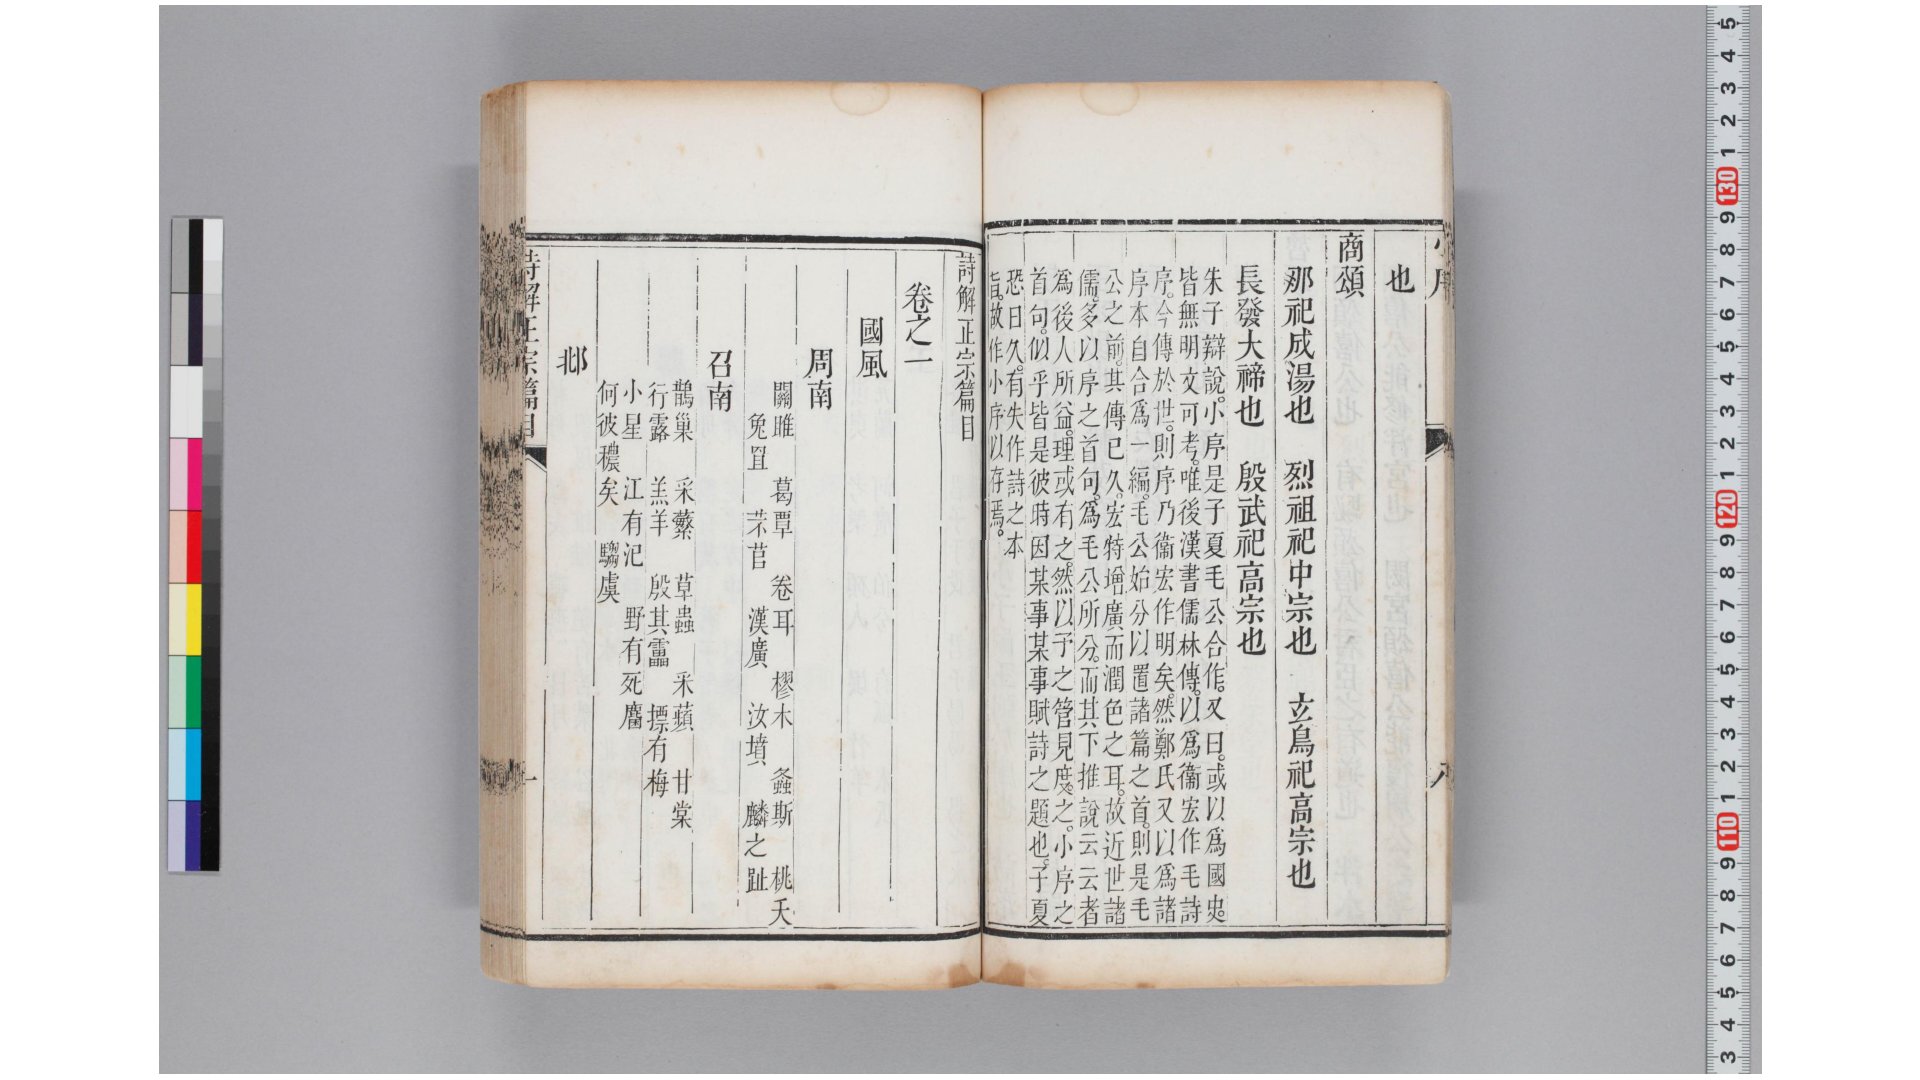 也
商頌
那祀成湯也　烈祖祀中宗也　玄鳥祀高宗也
長發大禘也　殷武祀高宗也
朱子辯說。小序是子夏毛公合作。又曰。或以爲國史。
皆無明文可考。唯後漢書儒林傳。以爲衞宏作毛詩
序。今傳於世。則序乃衞宏作明矣。然鄭氏又以爲諸
序本自合爲一編。毛公始分以置諸篇之首。則是毛
公之前。其傳已久。宏特增廣而潤色之耳。故近世諸
儒。多以序之首句。爲毛公所分。而其下推說云云者
爲後人所益。理或有之。然以予之管見度之。小序之
首句。似乎皆是彼時因某事某事賦詩之題也。子夏
恐日久。有失作詩之本
旨。故作小序以存焉。
小序
八
詩解正宗篇目
卷之一
國風
周南
關雎　葛覃　卷耳　樛木　螽斯　桃夭
兔罝　芣苢　漢廣　汝墳　麟之趾
召南
鵲巢　采蘩　草蟲　采蘋　甘棠
行露　羔羊　殷其靁　摽有梅
小星　江有汜　野有死麕
何彼穠矣　騶虞
邶
詩解正宗篇目
一
5
4
3
2
1
130
9
8
7
6
5
4
3
2
1
120
9
8
7
6
5
4
3
2
1
110
9
8
7
6
5
4
3